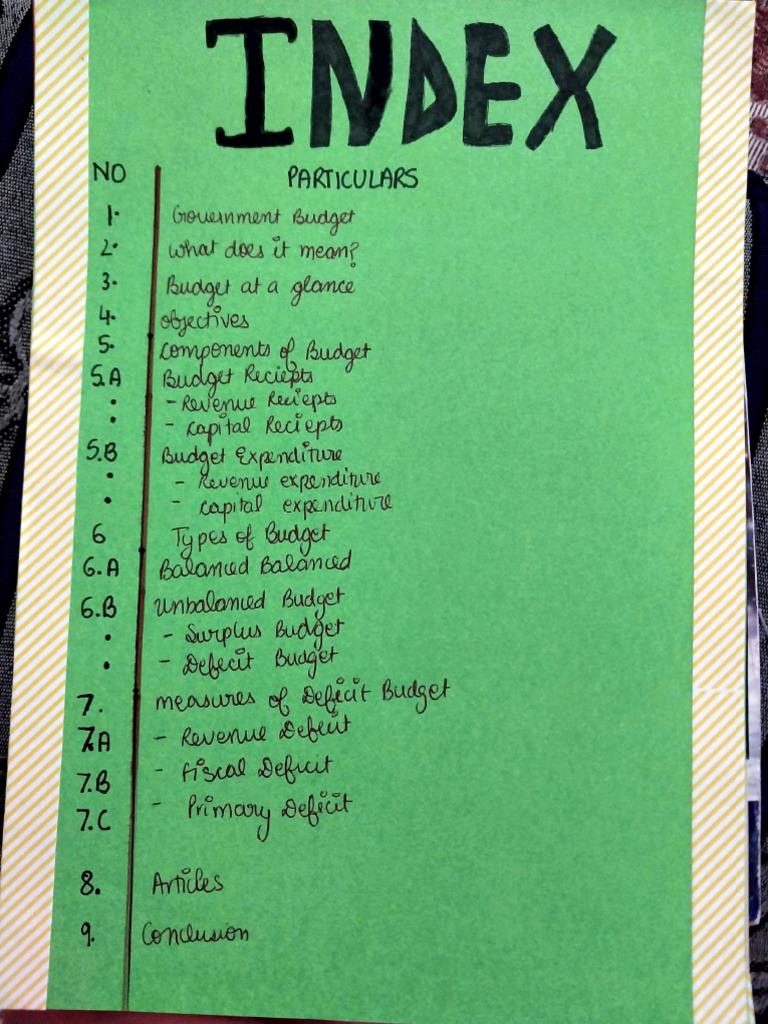 INDEX
NO PARTICULARS
1. Government Budget
2. What does it mean?
3. Budget at a glance
4. Objectives
5. Components of Budget
5.A Budget Reciepts
• - Revenue Reciepts
• - Capital Reciepts
5.B Budget Expenditure
• - Revenue expenditure
• - Capital expenditure
6 Types of Budget
6.A Balanced Balanced
6.B Unbalanced Budget
• - Surplus Budget
• - Deficit Budget
7. measures of Deficit Budget
7.A - Revenue Deficit
7.B - Fiscal Deficit
7.C - Primary Deficit
8. Articles
9. Conclusion